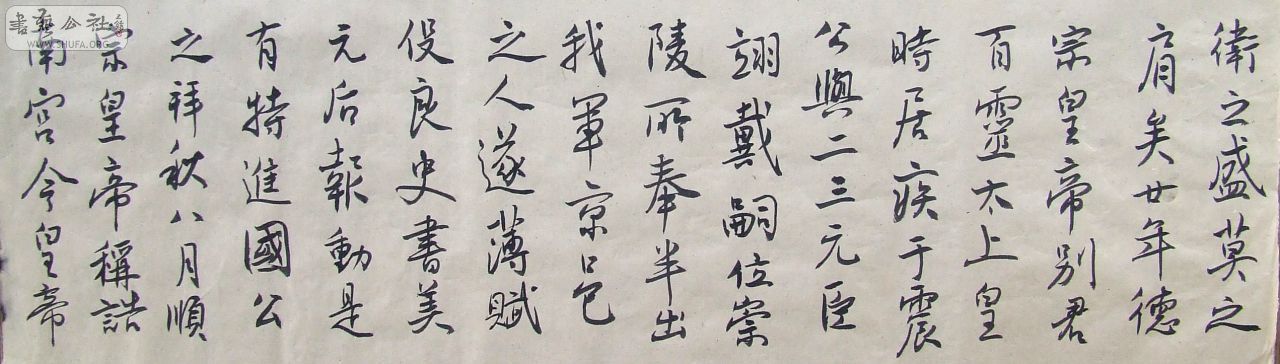 衛之盛莫之
肩矣廿年德
宗皇帝别君
百靈太上皇
時居疾于震
公與二三元臣
翊戴嗣位崇
陵所奉半出
我軍京邑
之人遂薄賦
役良史書美
元后報動是
有特進國公
之拜秋八月順
宗皇帝稱誥
南宫今皇帝
書法公社
WWW.SHUFA.ORG